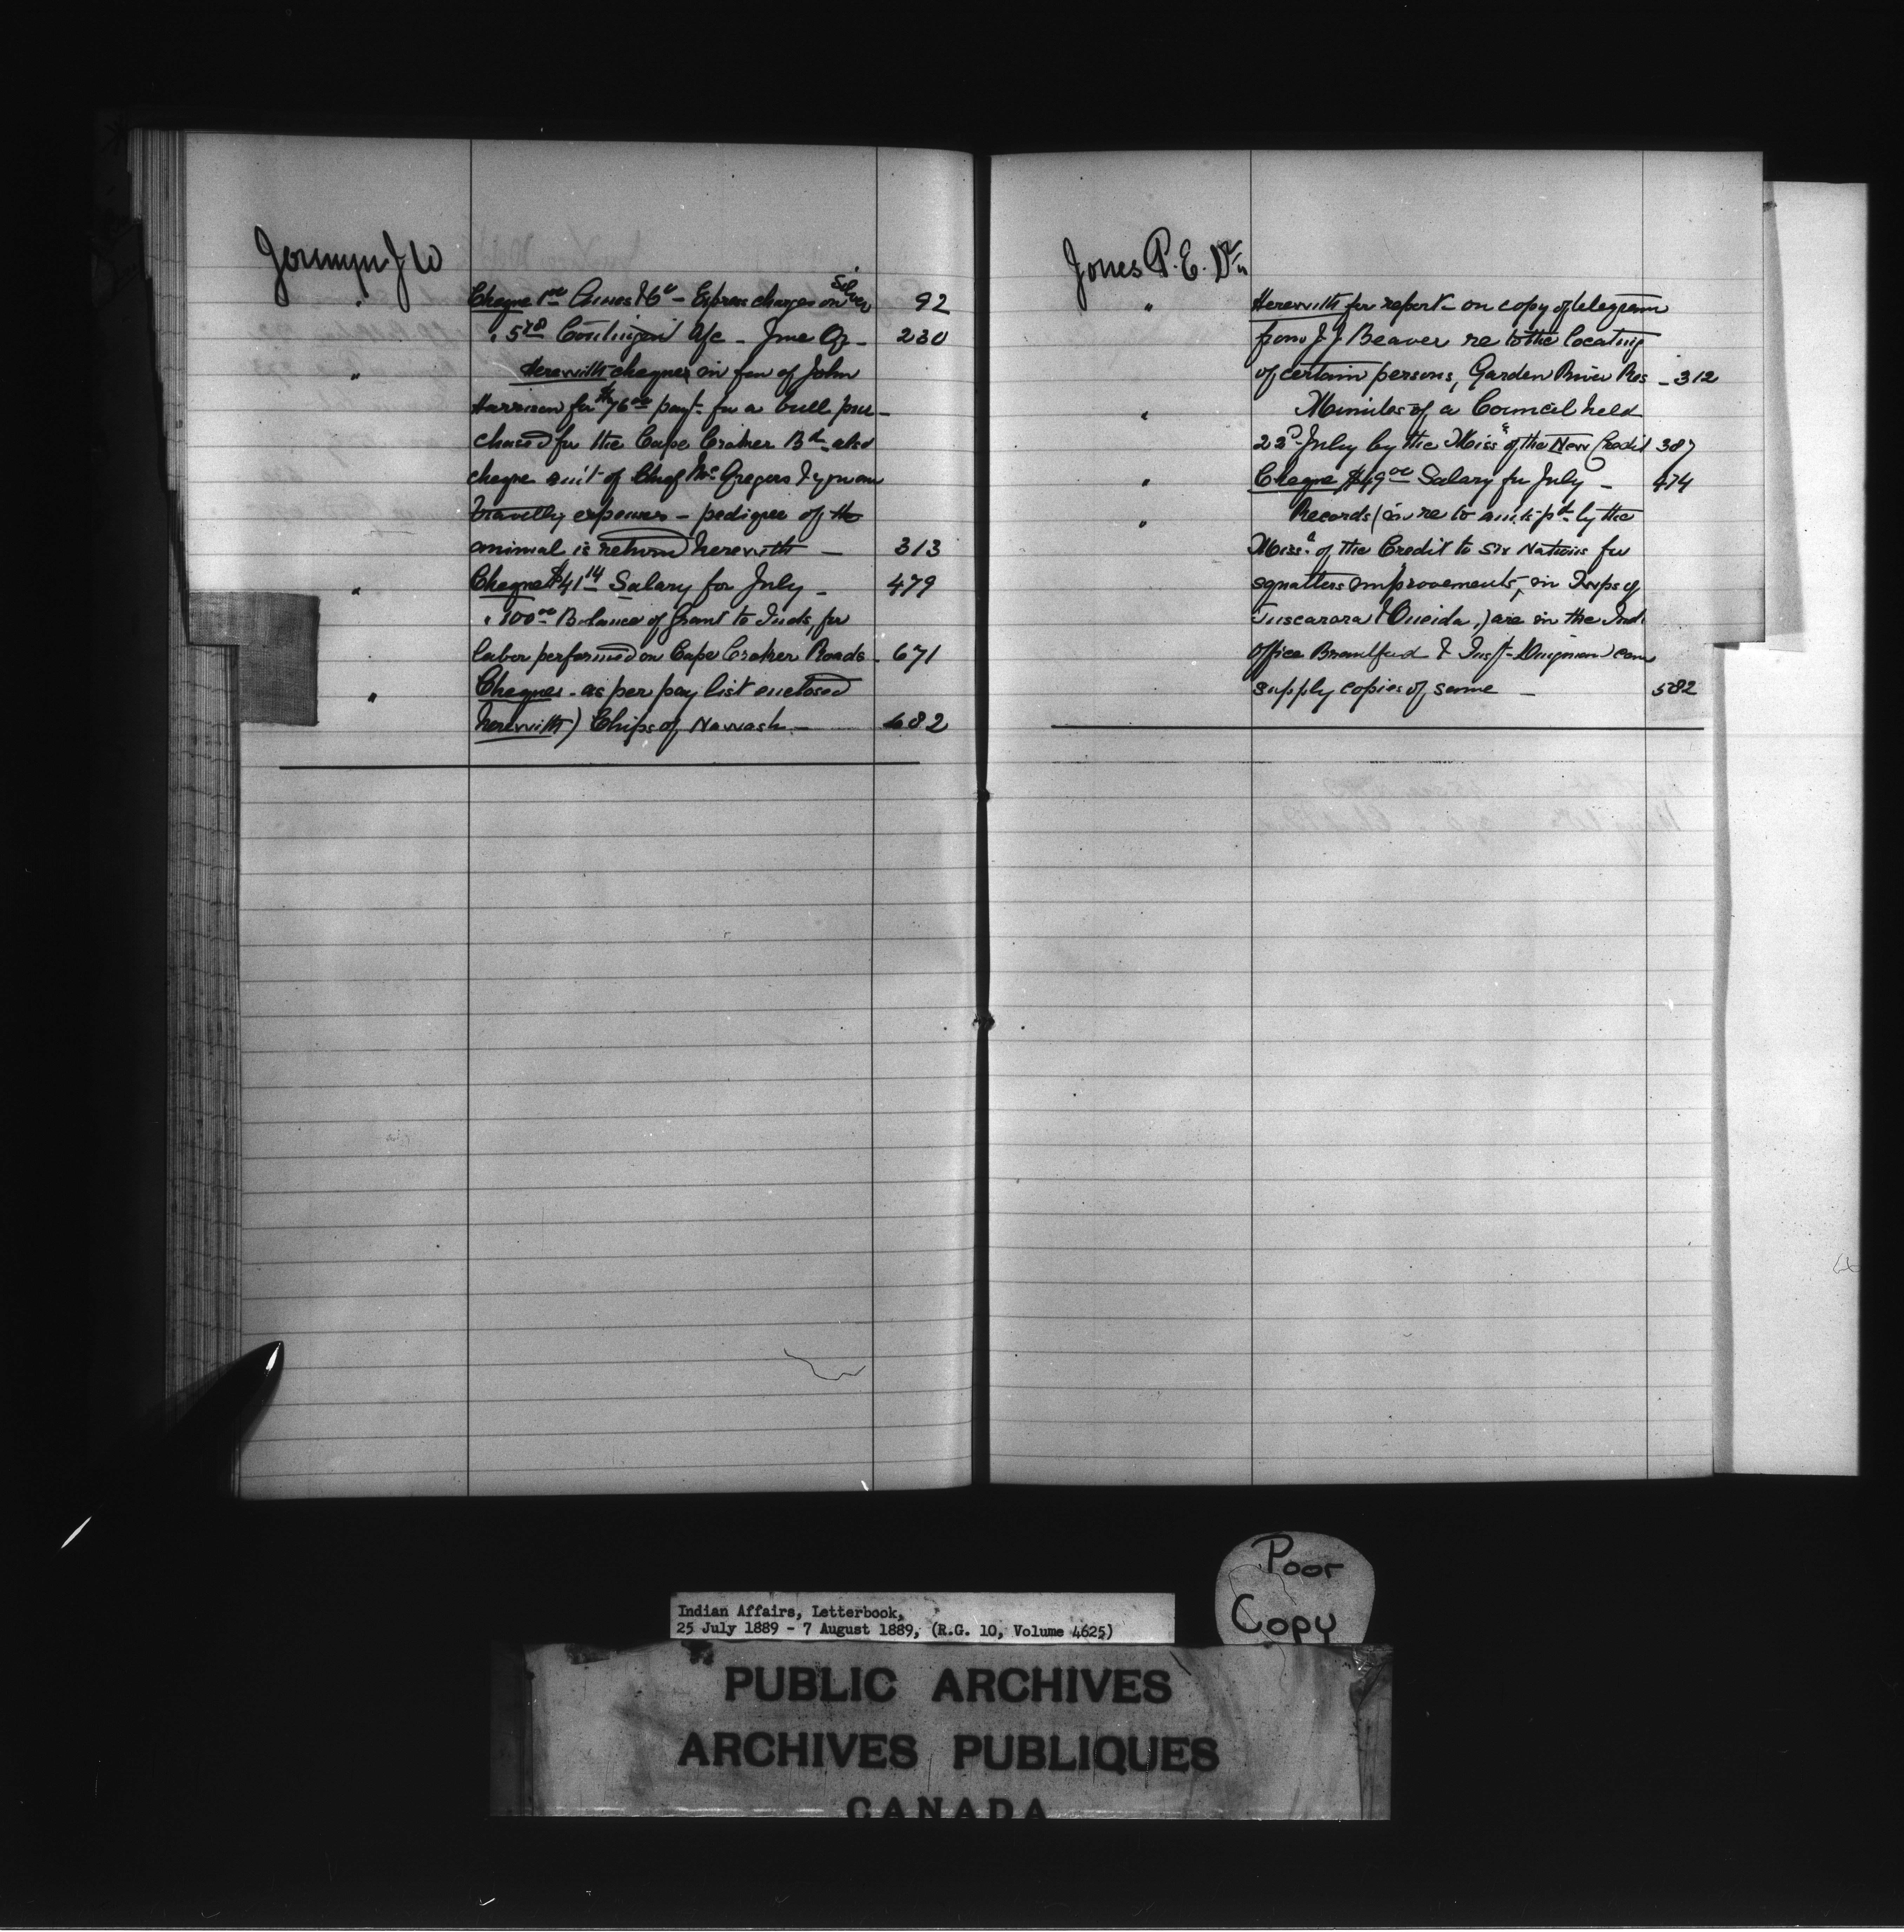 Jermyn J W
" Cheque 1.00 Annes & Co - Express charges on Silver 92
" 5.78 Contingent A/c - June Qr - 230
" Herewith cheques in fav of John
Harrison for $76.00 payt for a bull pur-
chased for the Cape Croker Bd also
cheque amt of Chief McGregors &
travellg expenses - pedigree of the
animal is returnd herewith - 313
" Cheque $41.14 Salary for July - 479
" 100.00 Balance of Grant to Inds, for
labor performed on Cape Croker Roads - 671
" Cheques - as per pay list enclosed
herewith) Chips of Nawash - 682
Jones P. E. Dr
" Herewith for report - on copy of telegram
from J. J. Beaver re to the locating
of certain persons, Garden River Res - 312
" Minutes of a Council held
22d July by the Miss.s of the New Credit 387
" Cheque, $49.00 Salary for July - 474
" Records (in re to amts pd by the
Miss.s of the Credit to Six Nations for
squatters improvements, in Twps of
Tuscarora & Oneida,) are in the Ind.
Office Brantford & Inspt Dingman can
supply copies of same - 582
Poor
Copy
Indian Affairs, Letterbook,
25 July 1889 - 7 August 1889, (R.G. 10, Volume 4625)
PUBLIC ARCHIVES
ARCHIVES PUBLIQUES
CANADA